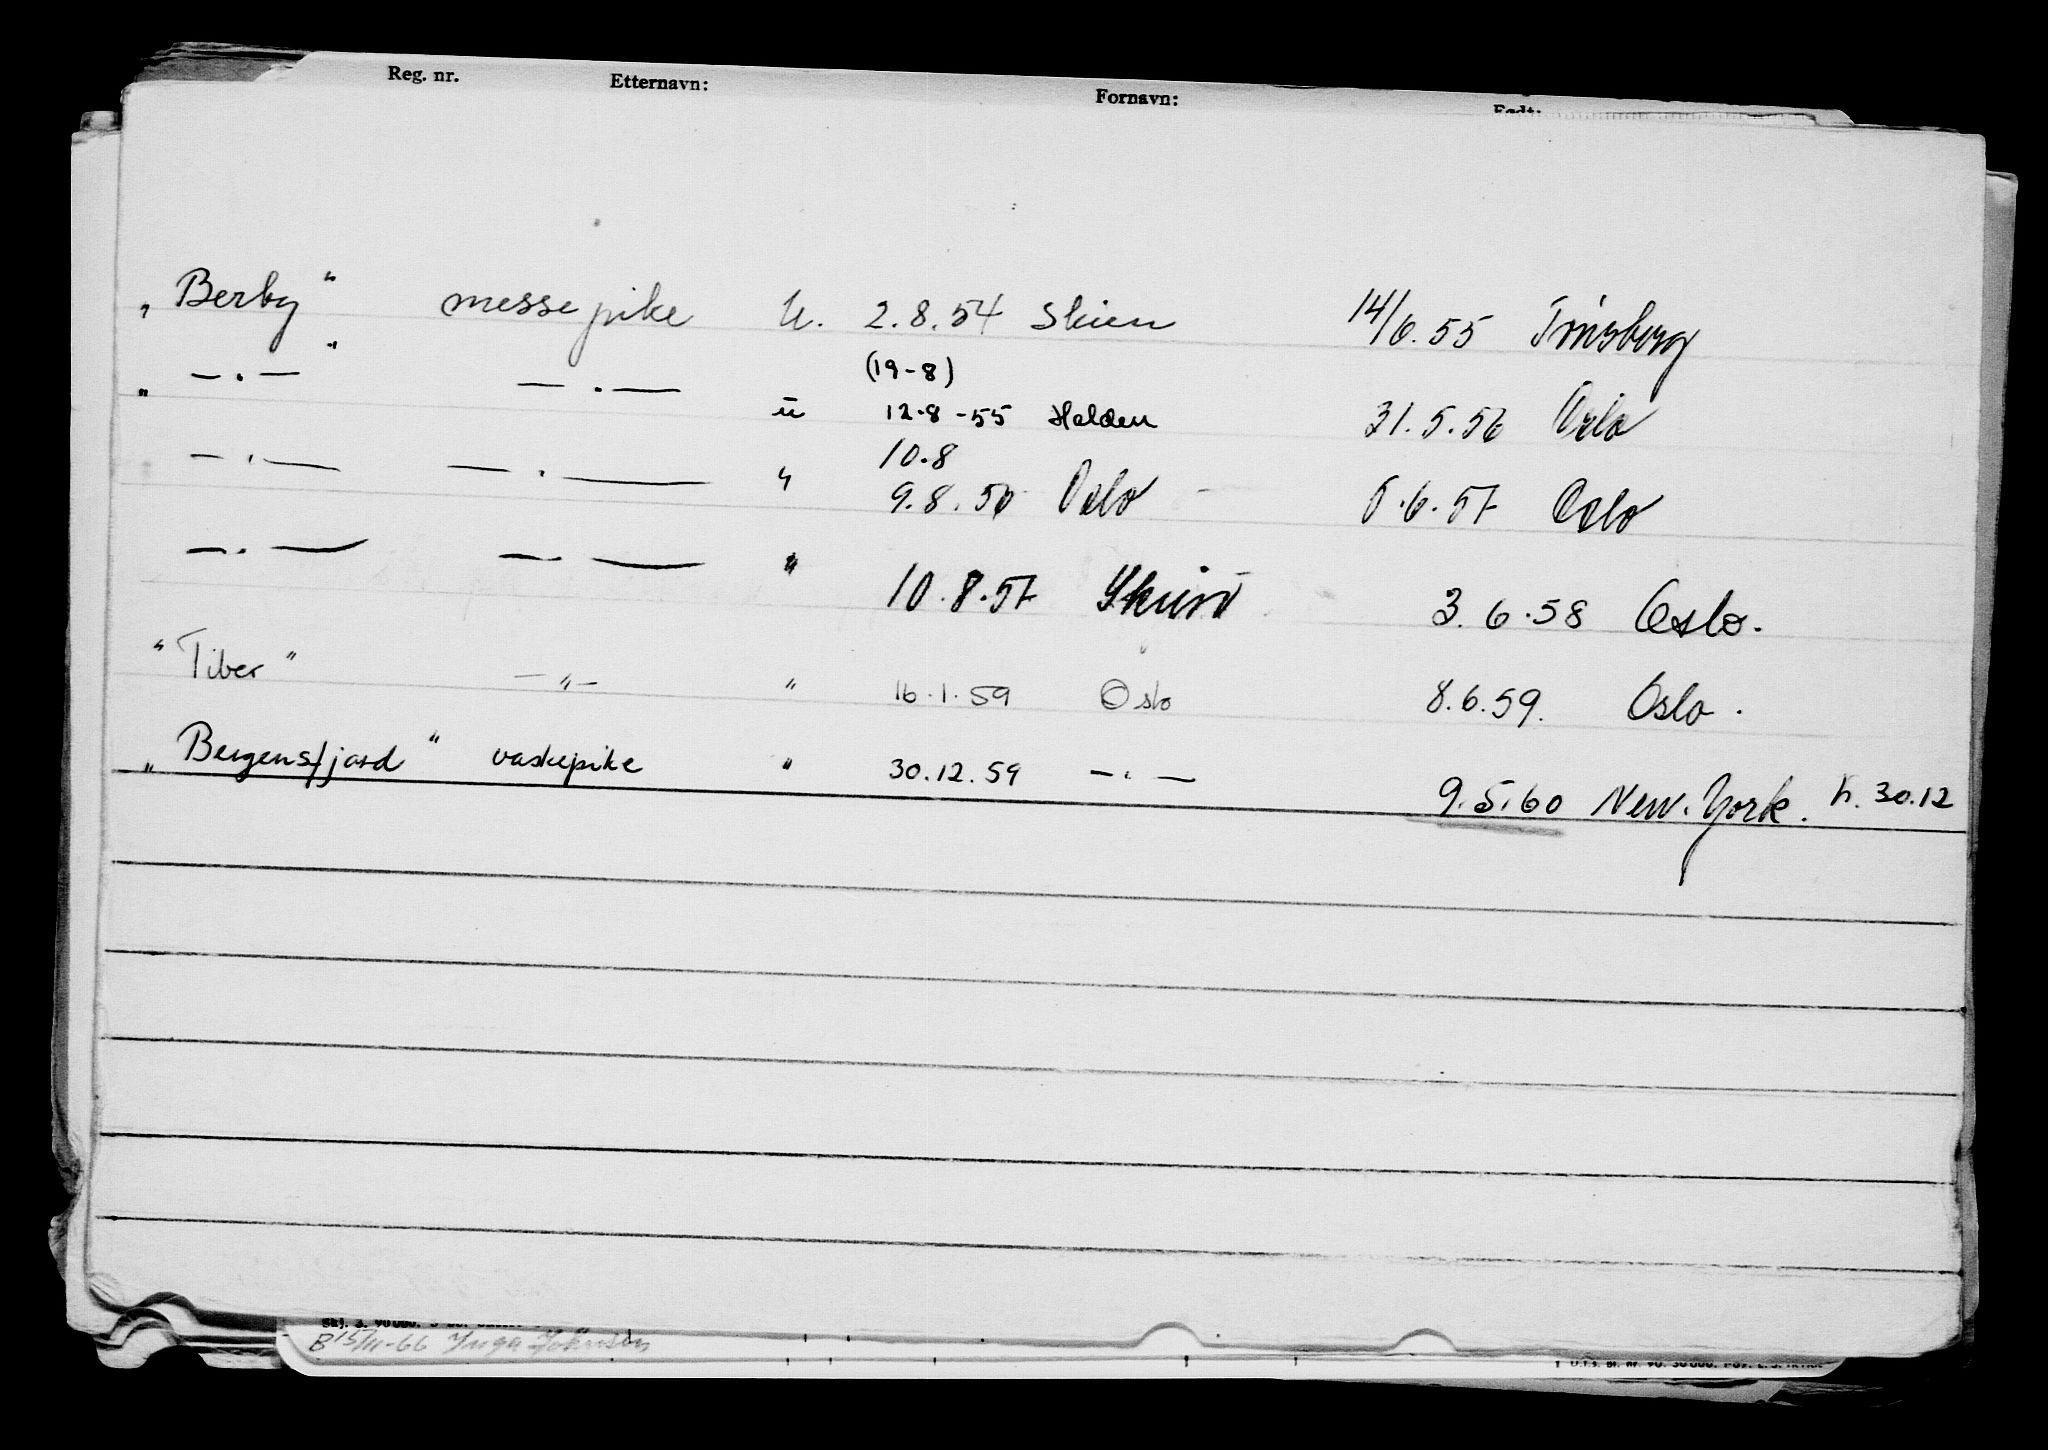 Reg. nr. Etternavn: Fornavn: Født:
„Berby" messepike U. 2.8.54 Skien 14/6.55 Tønsberg
(19-8)
„ — . — " — . — u 12.8-55 Halden 31.5.56 Oslo
10.8
— . — — . — " 9.8.56 Oslo 5.6.57 Oslo
— . — — . — " 10.8.57 Skien 3.6.58 Oslo.
"Tiber" — " — " 16.1.59 Oslo 8.6.59. Oslo.
„Bergensfjord" vaskepike " 30.12.59 — . — 9.5.60 New. York. h. 30.12
B 15/11-66 Inga Johnsen